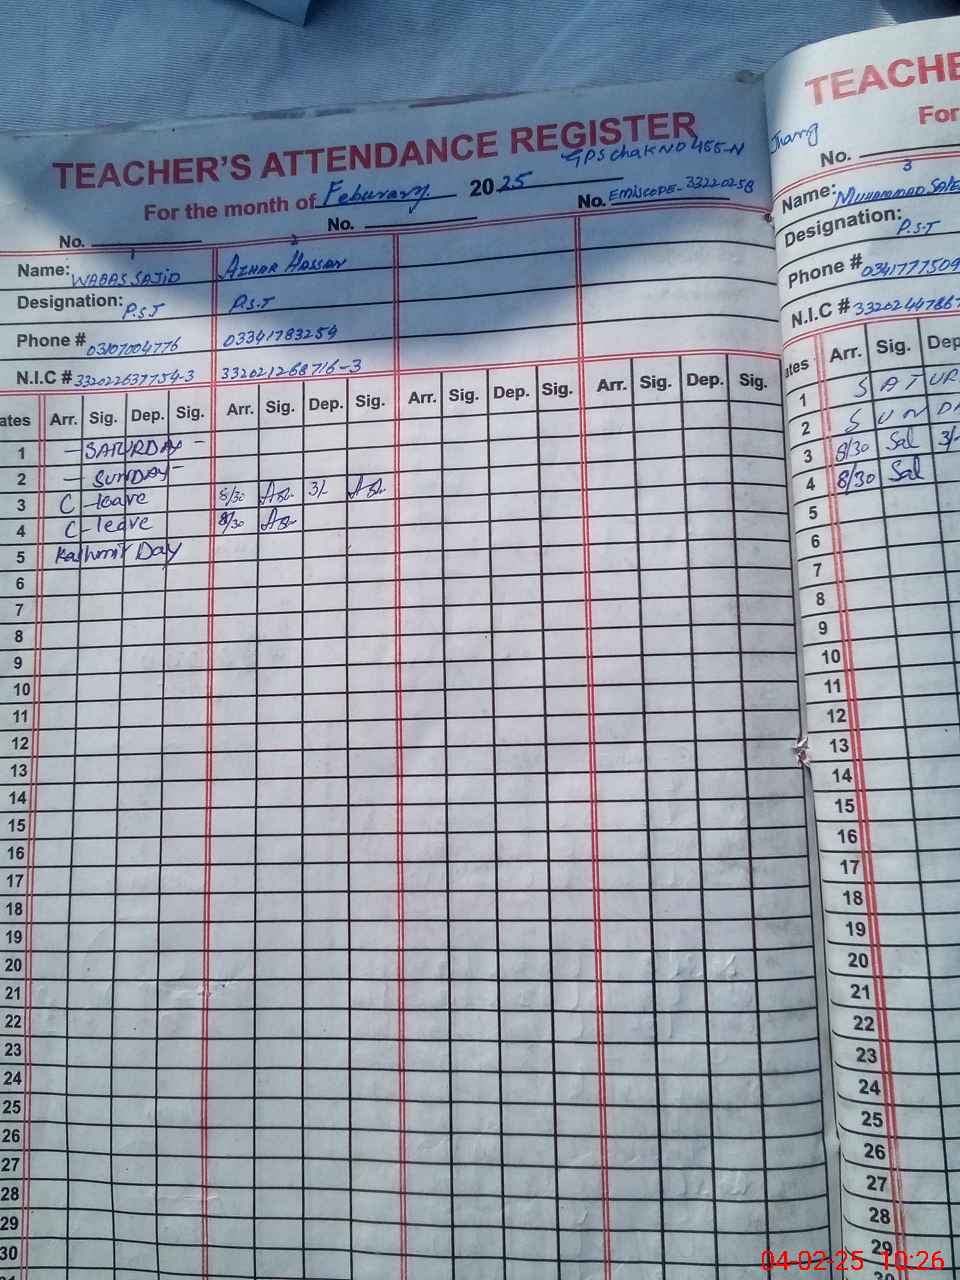 TEACHER'S ATTENDANCE REGISTER
GPS chak NO 455-N
For the month of Feburary 2025
No. EmisCODE-33220258
No. No.
1 2
Name: WABAS SAJID AZHAR HASSAN
Designation: P.S.T P.S.T
Phone # 03107004776 03341783254
N.I.C # 332022637754-3 332021268716-3
ates Arr. Sig. Dep. Sig. Arr. Sig. Dep. Sig. Arr. Sig. Dep. Sig. Arr. Sig. Dep. Sig.
1 - SATURDAY -
2 - SUNDAY -
3 C - leave 8/30 3/-
4 C - leave 8/30
5 Kashmir Day
6
7
8
9
10
11
12
13
14
15
16
17
18
19
20
21
22
23
24
25
26
27
28
29
30
TEACHE
For
Jhang
No.
3
Name: MUHAMMAD
Designation: P.S.T
Phone # 0341777509
N.I.C # 33202447867
ates Arr. Sig. Dep
1 SATUR
2 SUNDA
3 8/30 Sal 3/-
4 8/30 Sal
5
6
7
8
9
10
11
12
13
14
15
16
17
18
19
20
21
22
23
24
25
26
27
28
29
04-02-25 10:26